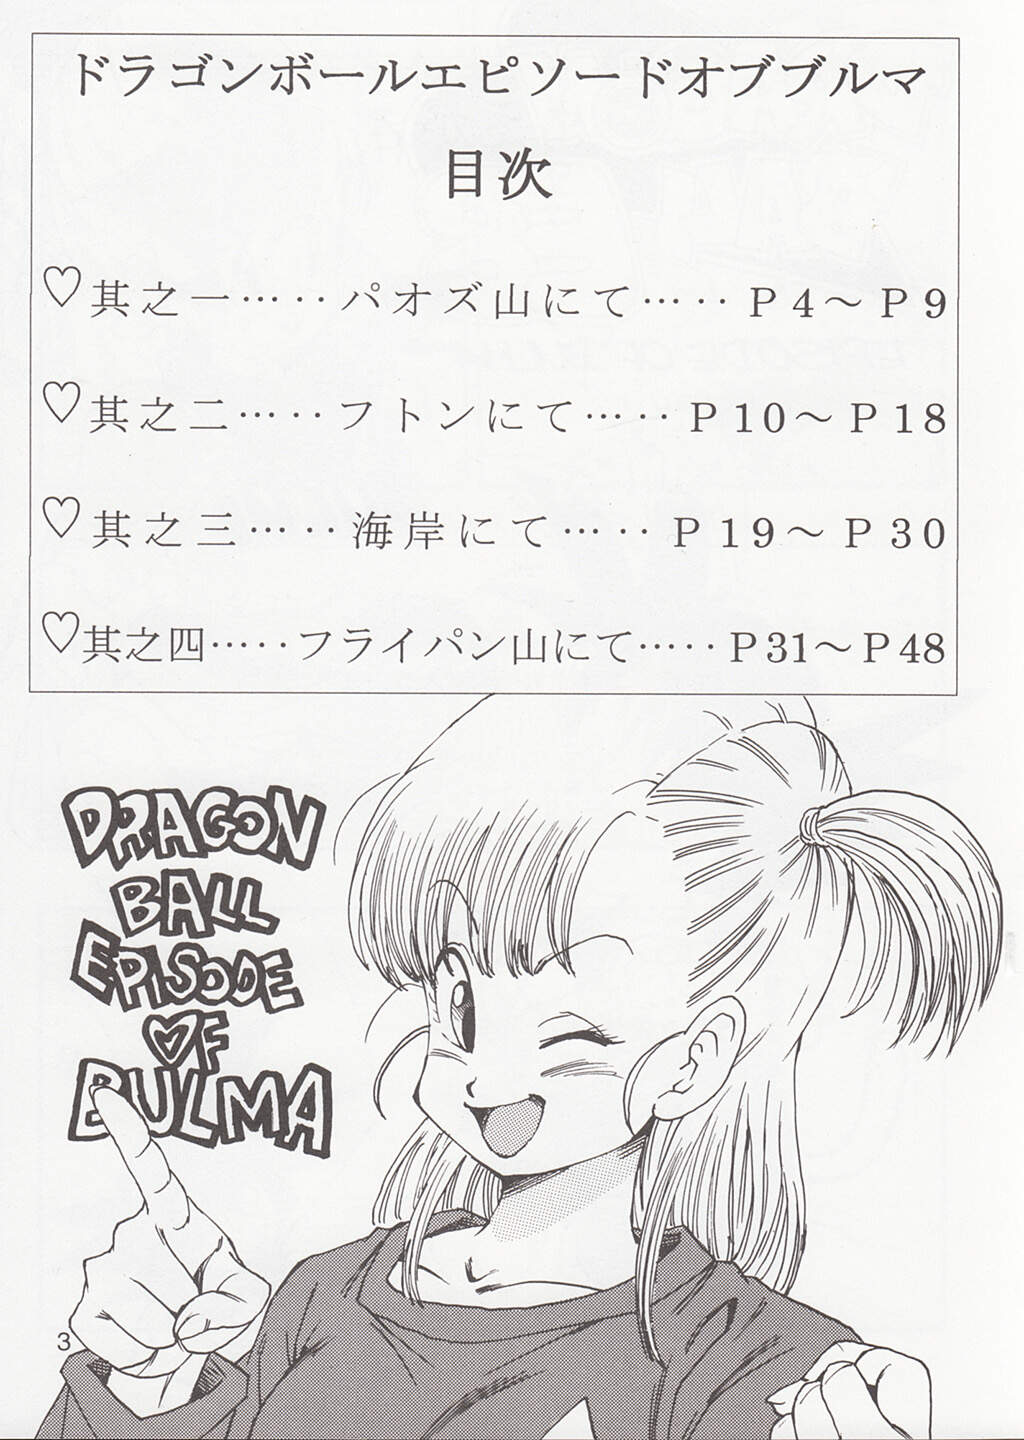 ドラゴンボールエピソードオブブルマ
目次
♡其之一…‥パオズ山にて…‥P4～P9
♡其之二…‥フトンにて…‥P10～P18
♡其之三…‥海岸にて…‥P19～P30
♡其之四…‥フライパン山にて…‥P31～P48
DRAGON
BALL
EPISODE
OF
BULMA
3